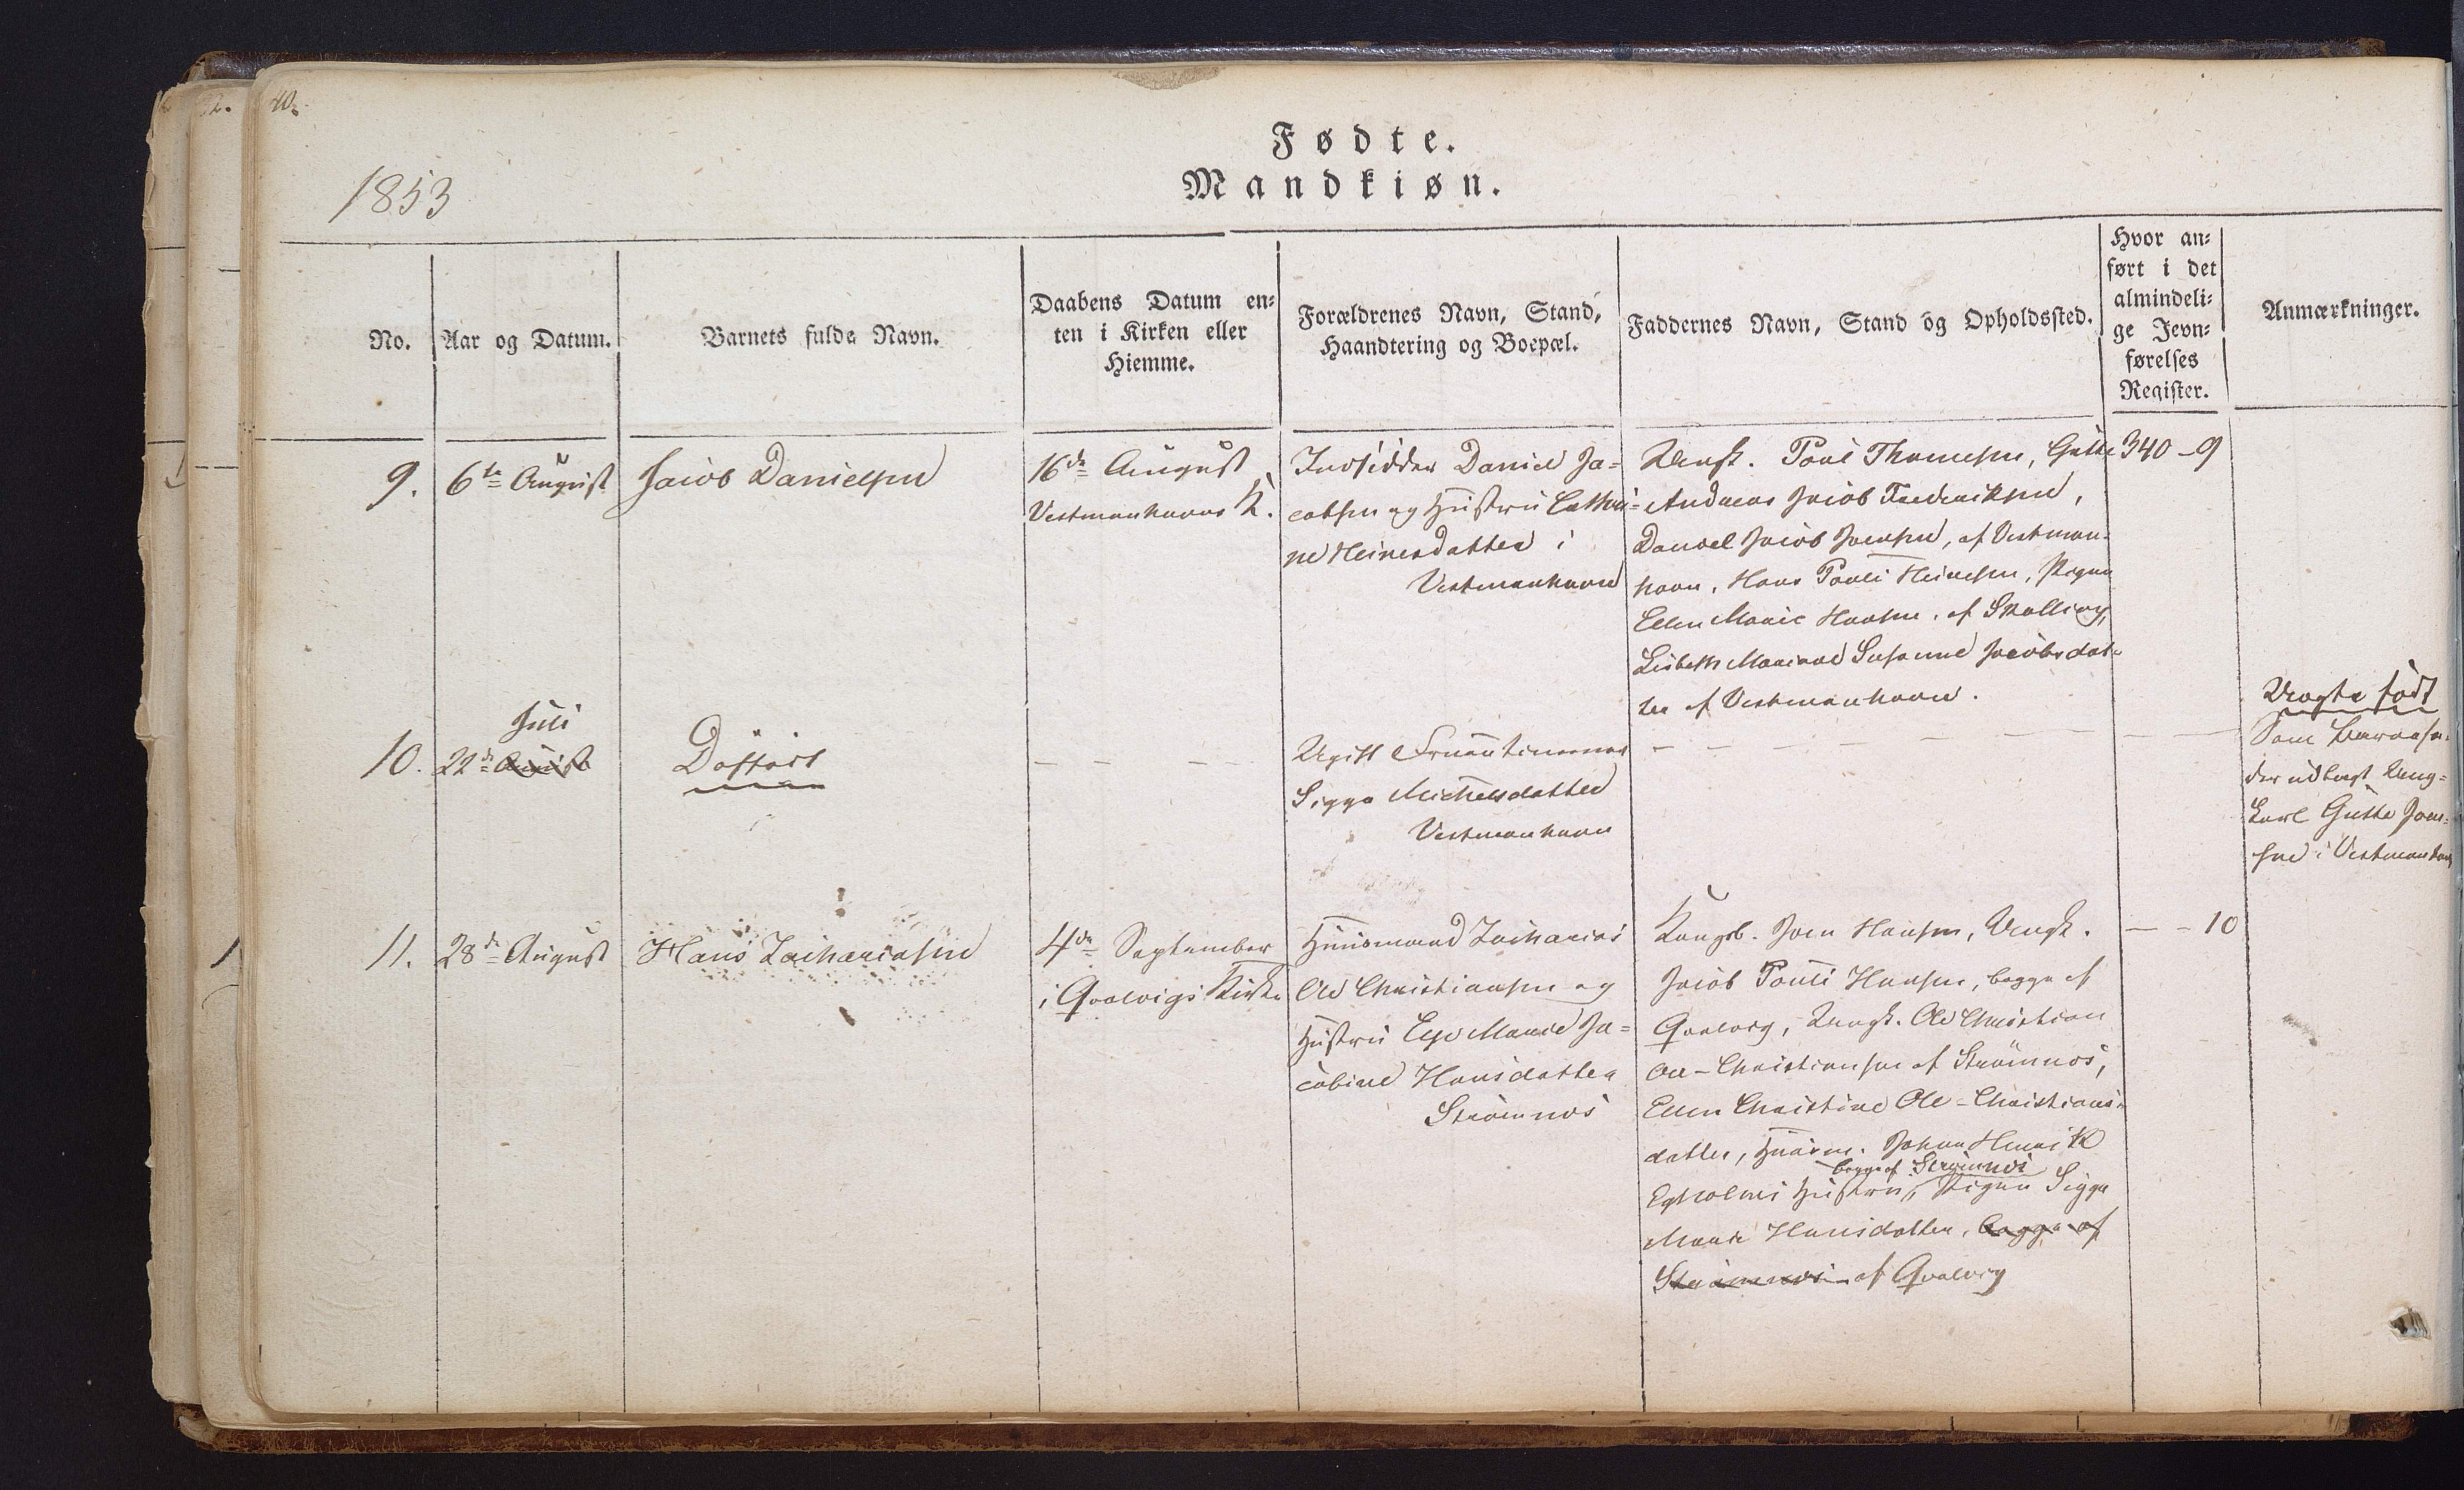 40.
1853
Fødte.
Mandkiøn.
No.
Aar og Datum.
Barnets fulde Navn.
Daabens Datum en-
ten i Kirken eller
Hiemme.
Forældrenes Navn, Stand,
Haandtering og Boepæl.
Faddernes Navn, Stand og Opholdssted.
Hvor an-
ført i det
almindeli-
ge Jevn-
førelses
Register.
Anmærkninger.
9.
6te August
Jacob Danielsen
16de August
Vestmanhavns K.
Indsidder Daniel Ja-
cobsen og Hustru Cathri-
ne Heinesdatter i
Vestmanhavn
Ungk. Poul Thomesen, Gutte
Andreas Jacob Frederiksen,
Daniel Jacob Joensen, af Vestman-
havn, Hans Pauli Heinesen, Pigen
Ellen Marie Hansen, af Qvalvig,
Lisbeth Mariane Susanne Jacobsdat-
ter af Vestmanhavn.
340 - 9
10.
Juli
22de August
Dødfødt
Ugift Fruentimmer
Sigga Michelsdatter
Vestmanhavn
Uægte født
Som Barnefa-
der udlagt Ung-
karl Gutte Joen-
sen i Vestmanhavn
11.
28de August
Hans Zachariasen
4de September
i Qvalvigs Kirke
Huusmand Zacharias
Ole Christiansen og
Hustru Else Marie Ja-
cobine Hansdatter
Strømnæs
Kongsb. Joen Hansen, Ungk.
Jacob Pauli Hansen, begge af
Qvalvig, Ungk. Ole Christian
Ole-Christiansen af Strømnæs,
Ellen Christine Ole-Christians-
datter, Huusm. Johan Henrik
begge af Strømnæs
Egholms Hustru, Pigen Sigga
Marie Hansdatter, begge af
Strømnæs af Qvalvig
- - 10